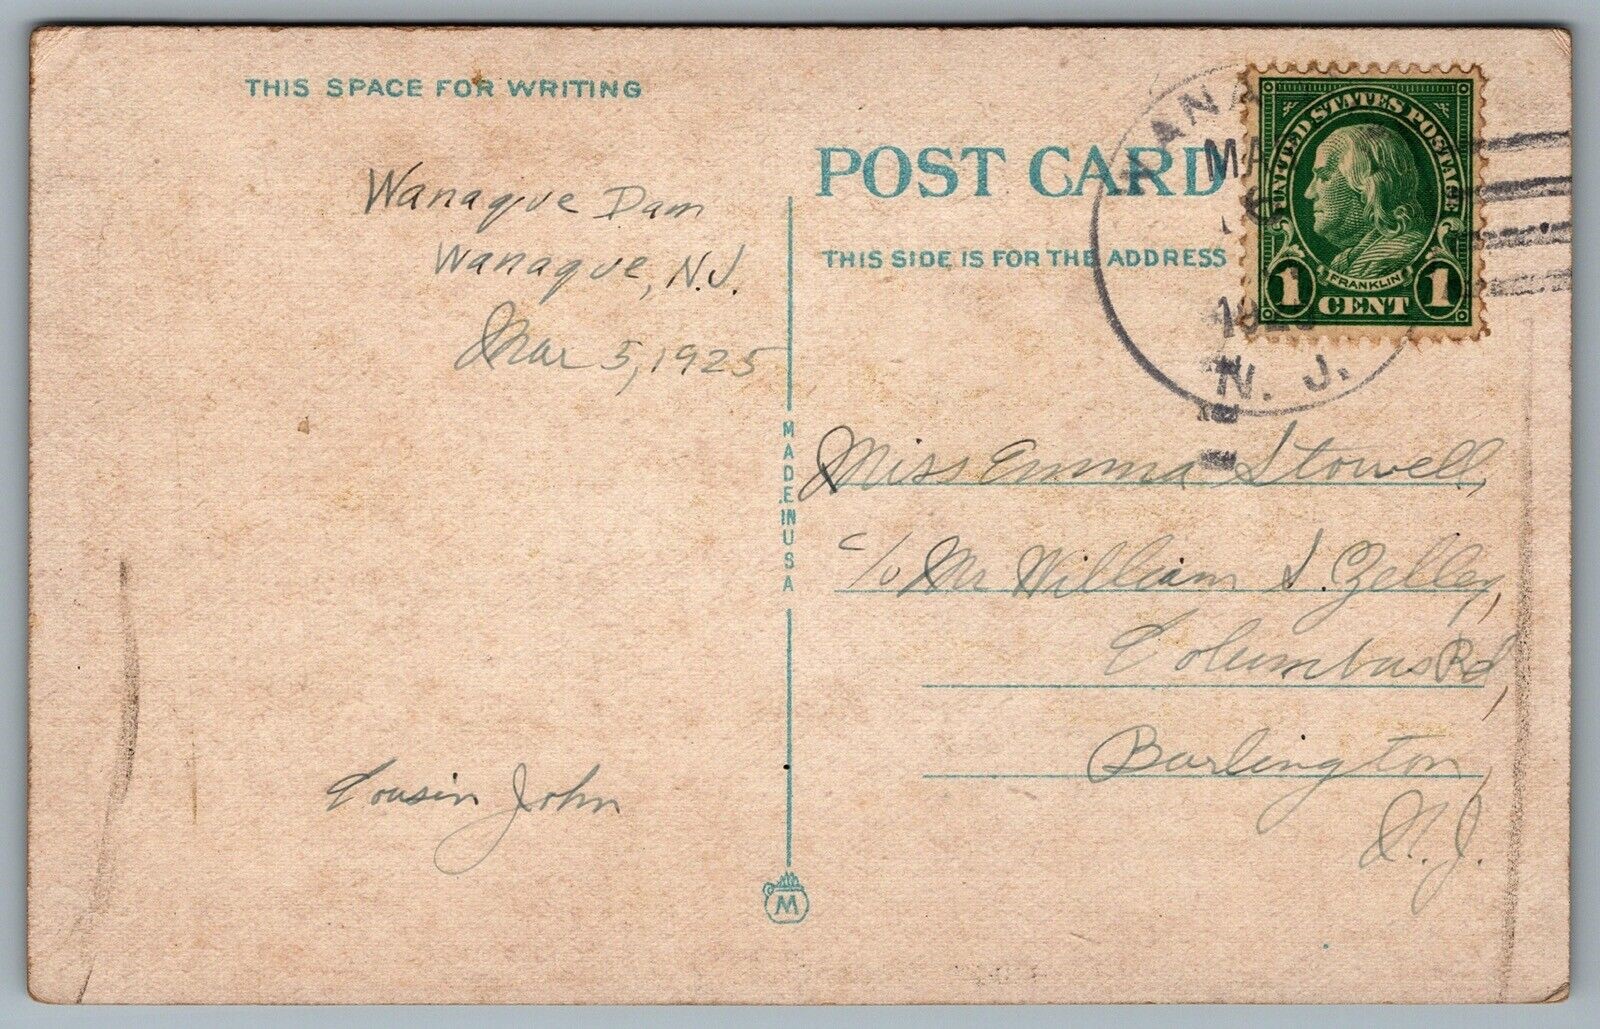 THIS SPACE FOR WRITING
Wanaque Dam
Wanaque, N.J.
Mar 5, 1925
Cousin John
MADE IN USA
M
POST CARD
THIS SIDE IS FOR THE ADDRESS
N. J.
UNITED STATES POSTAGE
FRANKLIN
1 CENT 1
Miss Emma Stowell,
c/o Mr William S. Zelley,
Columbus Rd,
Burlington,
N.J.